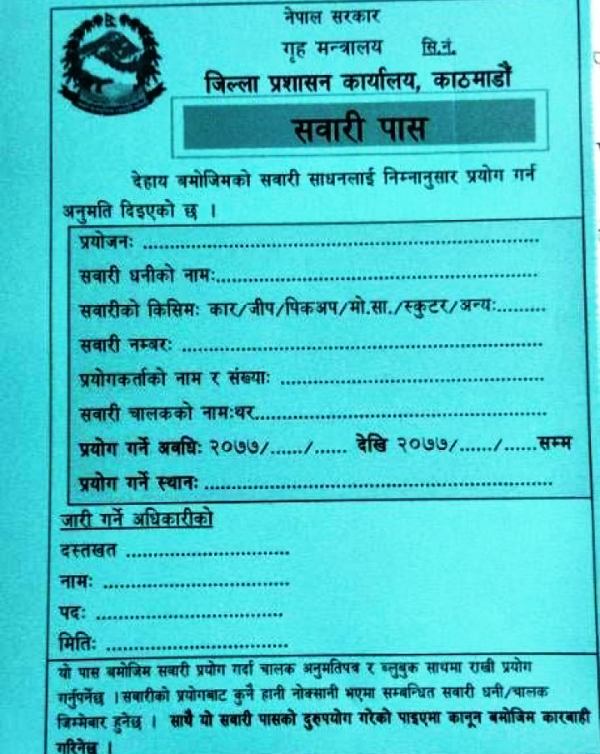 नेपाल सरकार
गृह मन्त्रालय सि.नं.
जिल्ला प्रशासन कार्यालय, काठमाडौं
सवारी पास
देहाय बमोजिमको सवारी साधनलाई निम्नानुसार प्रयोग गर्न
अनुमति दिइएको छ ।
प्रयोजनः ............................................................
सवारी धनीको नामः................................................
सवारीको किसिमः कार/जीप/पिकअप/मो.सा./स्कुटर/अन्यः.........
सवारी नम्बरः ......................................................
प्रयोगकर्ताको नाम र संख्याः ........................................
सवारी चालकको नामःथर............................................
प्रयोग गर्ने अवधिः २०७७/....../...... देखि २०७७/....../......सम्म
प्रयोग गर्ने स्थानः ....................................................
जारी गर्ने अधिकारीको
दस्तखत .........................
नामः ............................
पदः ............................
मितिः ...........................
यो पास बमोजिम सवारी प्रयोग गर्दा चालक अनुमतिपत्र र ब्लुबुक साथमा राखी प्रयोग
गर्नुपर्नेछ ।सवारीको प्रयोगबाट कुनै हानी नोक्सानी भएमा सम्बन्धित सवारी धनी/चालक
जिम्मेबार हुनेछ । साथै यो सवारी पासको दुरुपयोग गरेको पाइएमा कानून बमोजिम कारबाही
गरिनेछ ।